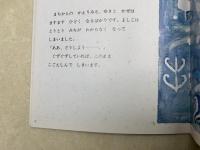 まちからの　かえりみち、ゆきと　かぜは
ますます　ひどく　なるばかりです。ましこは
とうとう　みちが　わからなく　なって
しまいました。
「ああ、どうしよう……。」
ぐずぐずしていれば、このまま
こごえしんで　しまいます。